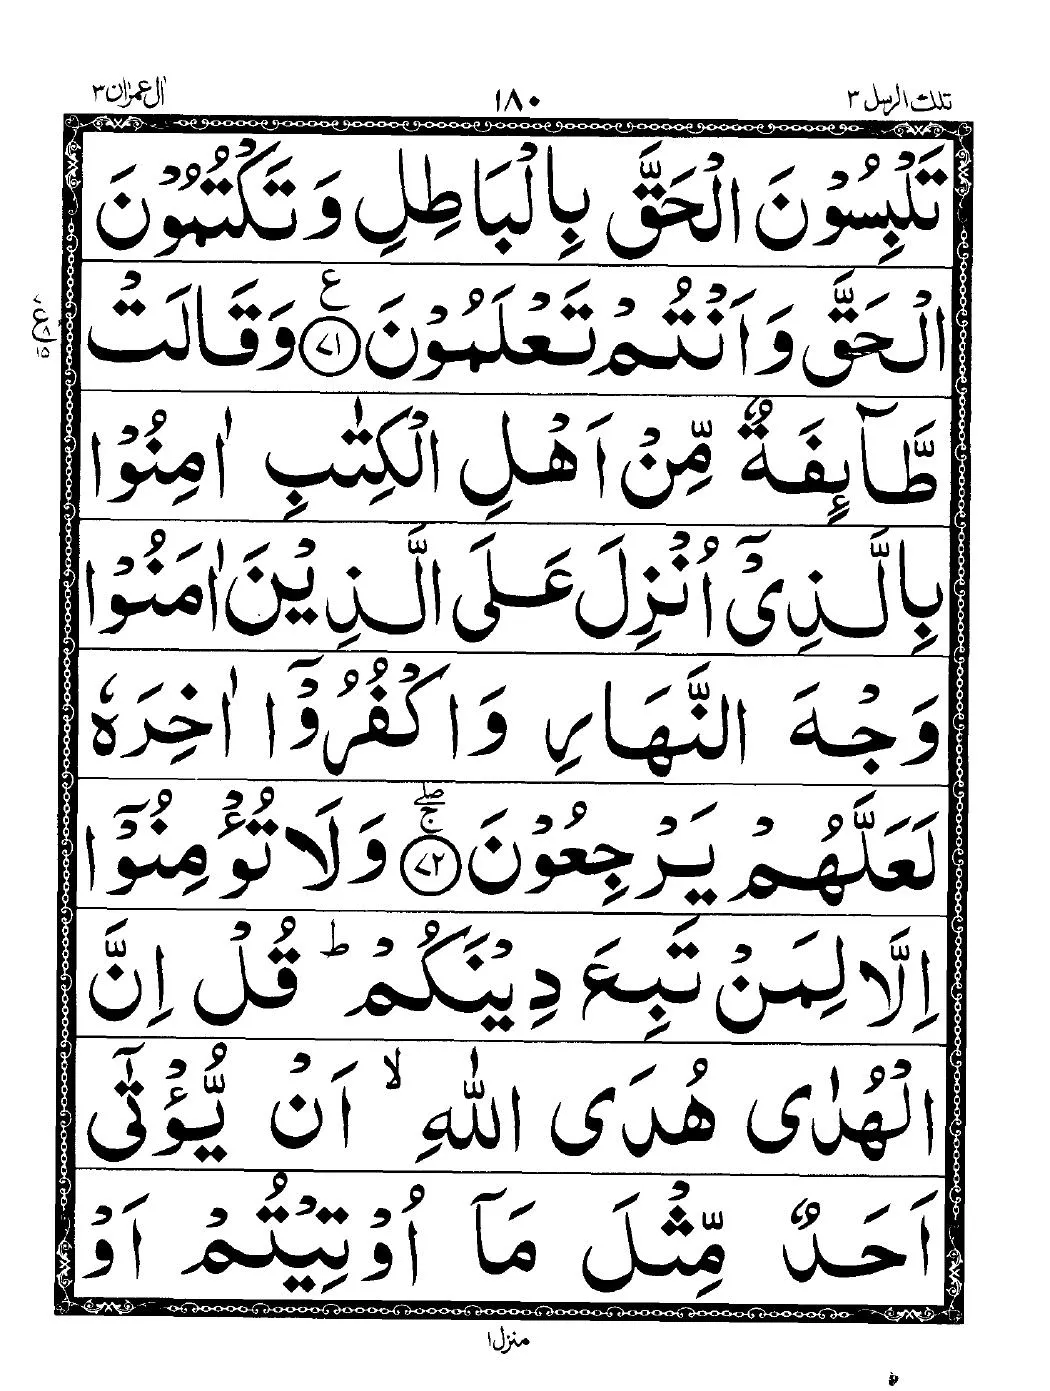 تلك الرسل ٣
١٨٠
اٰل عمرٰن ٣
تَلْبِسُوْنَ الْحَقَّ بِالْبَاطِلِ وَ تَكْتُمُوْنَ
الْحَقَّ وَ اَنْتُمْ تَعْلَمُوْنَ ﴿۷۱﴾ ع وَ قَالَتْ
طَّآىِٕفَةٌ مِّنْ اَهْلِ الْكِتٰبِ اٰمِنُوْا
بِالَّذِیْۤ اُنْزِلَ عَلَى الَّذِیْنَ اٰمَنُوْا
وَجْهَ النَّهَارِ وَ اكْفُرُوْۤا اٰخِرَهٗ
لَعَلَّهُمْ یَرْجِعُوْنَ ﴿۷۲﴾ ۖۚ وَ لَا تُؤْمِنُوْۤا
اِلَّا لِمَنْ تَبِعَ دِیْنَكُمْ ؕ قُلْ اِنَّ
الْهُدٰى هُدَى اللّٰهِ ۙ اَنْ یُّؤْتٰۤى
اَحَدٌ مِّثْلَ مَاۤ اُوْتِیْتُمْ اَوْ
منزل ١